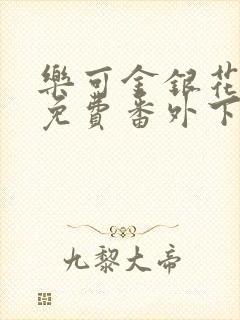 樂可金銀花
免費番外下
九黎大帝